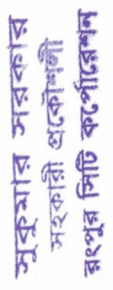 সুকুমার সরকার
সহকারী প্রকৌশলী
রংপুর সিটি কর্পোরেশন